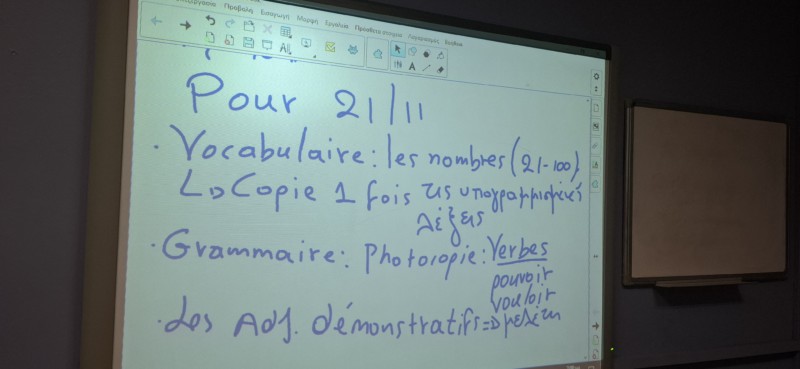 Προβολή Εισαγωγή Μορφή Εργαλεία Προσθετα στοιχεία Λογαριασμός Βοήθεια
Pour 21/11
· Vocabulaire: les nombres (21-100)
Copie 1 fois τις υπογραμμισμένες
λέξεις
· Grammaire: Photocopie: Verbes
pouvoir
vouloir
· Les Adj. démonstratifs => μελέτη